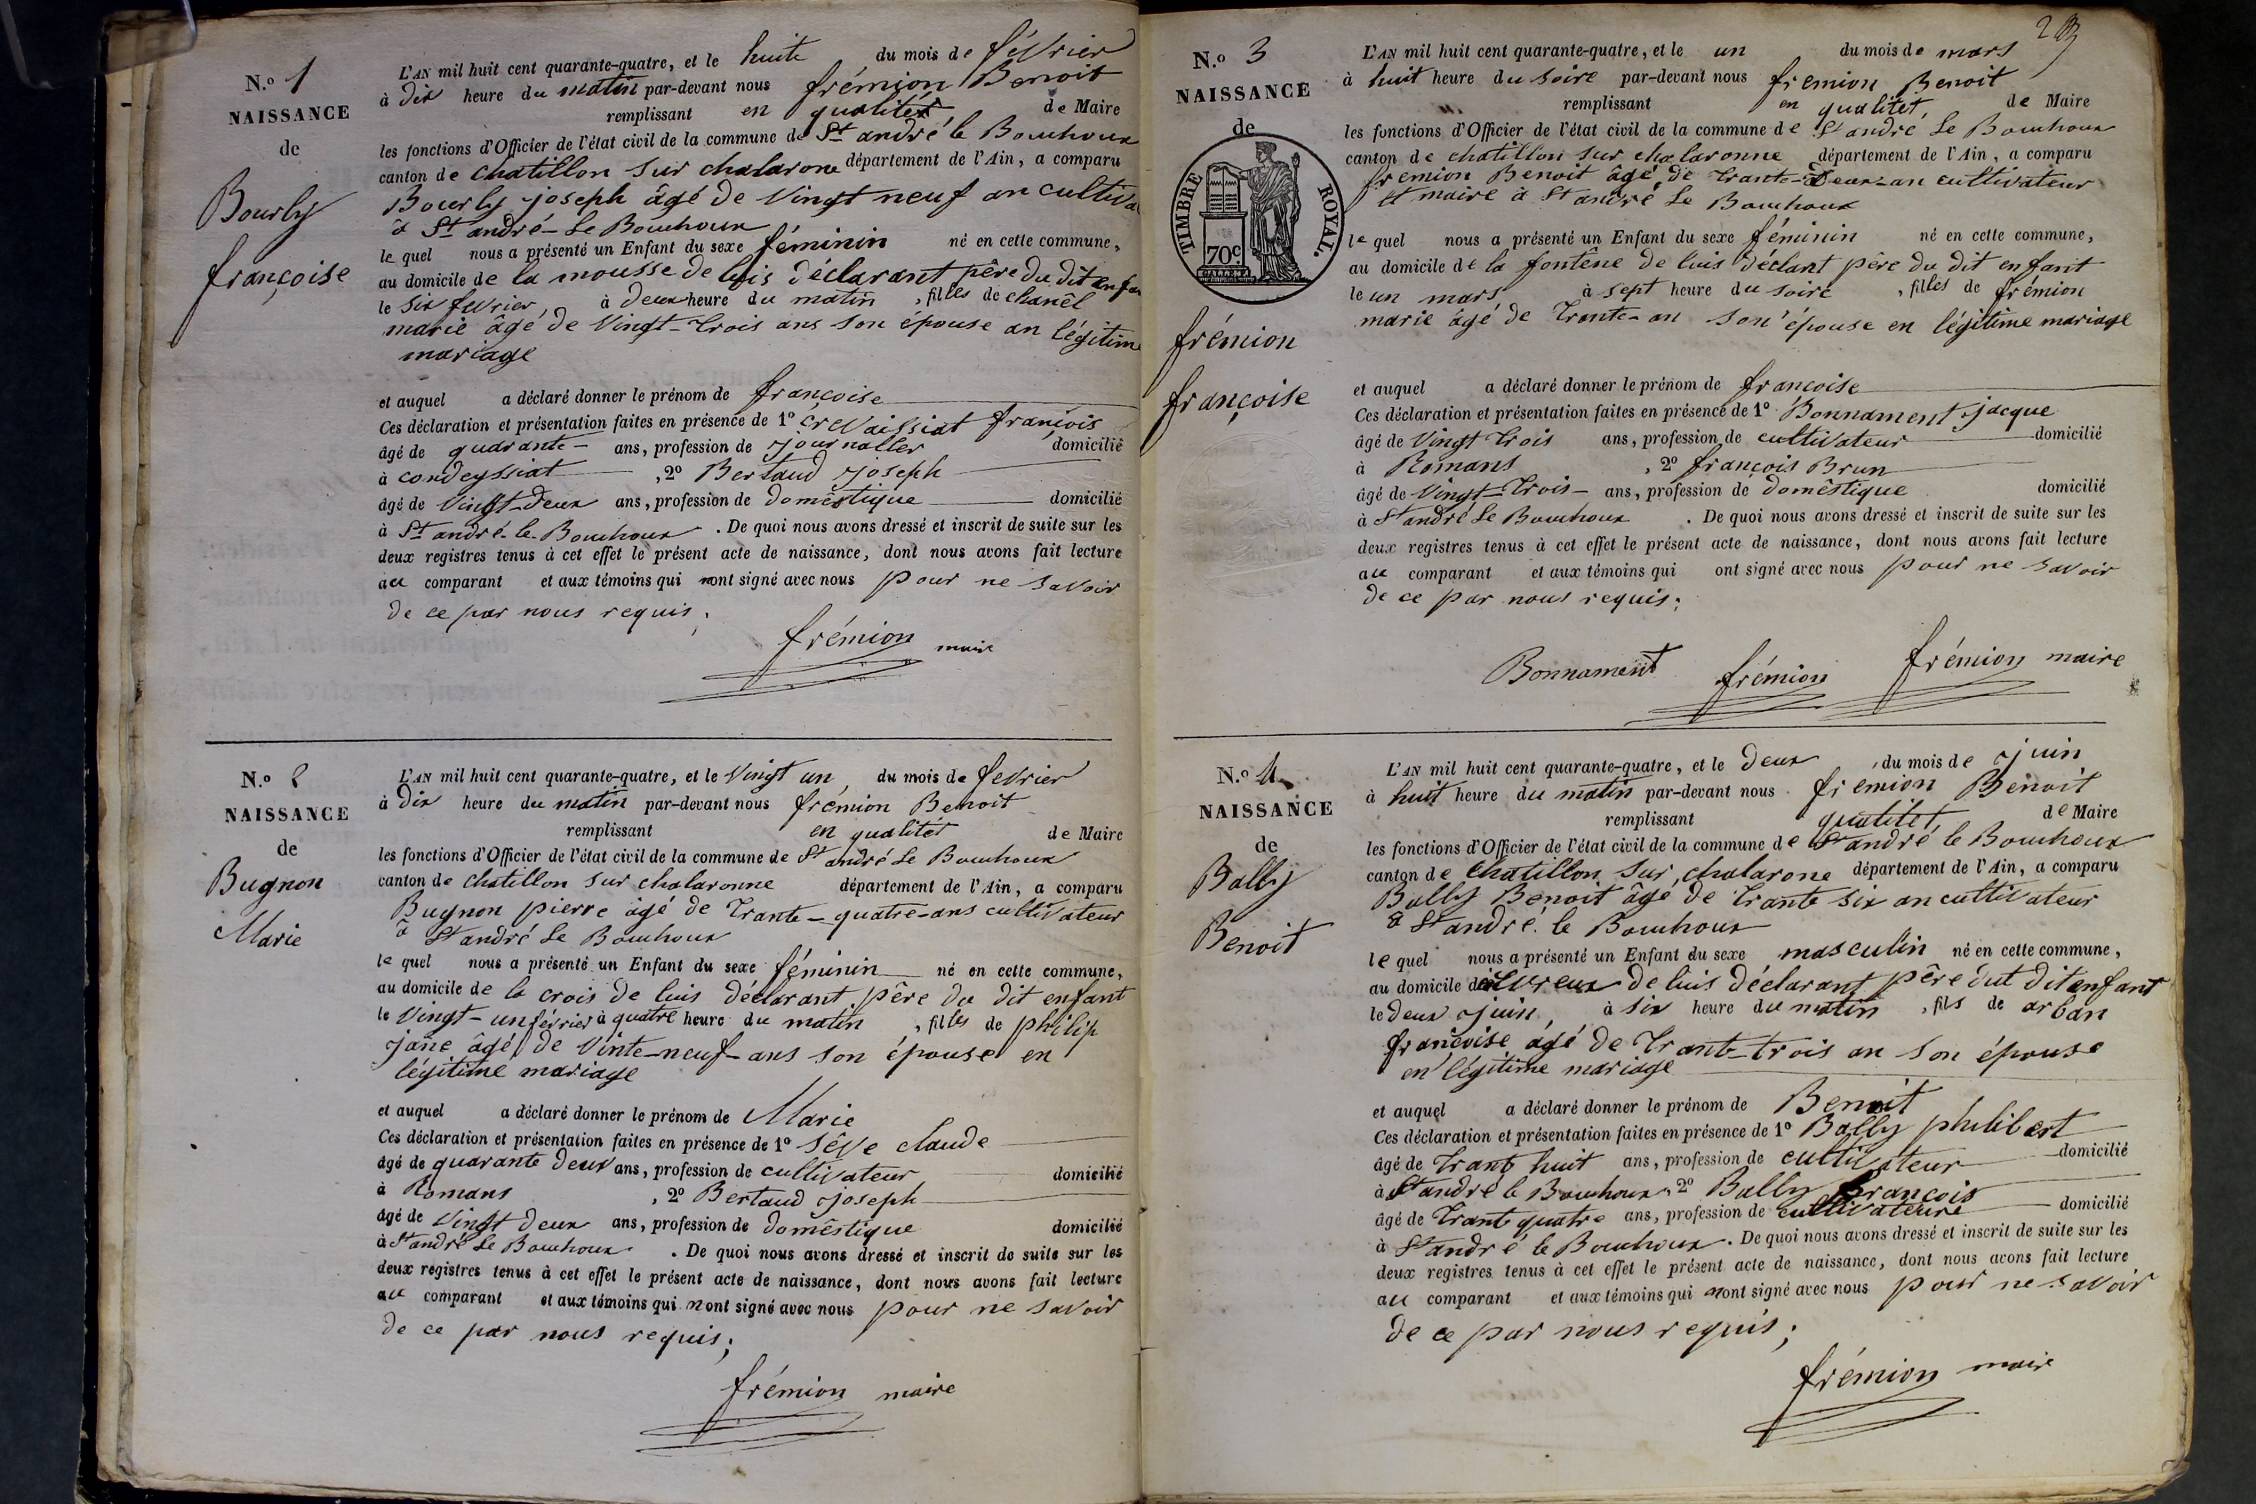 N.o 1
NAISSANCE
de
Bourly
françoise
L'AN mil huit cent quarante-quatre, et le huite du mois de février
à dix heure du matin par-devant nous frémion Benoit
remplissant en qualitét de Maire
les fonctions d'Officier de l'état civil de la commune de St andré le Bouchoux
canton de chatillon sur chalarone département de l'Ain, a comparu
Bourly joseph âgé de Vingt neuf an cultiva
à St andré-Le Bouchoux
le quel nous a présenté un Enfant du sexe féminin né en cette commune,
au domicile de la mousse de luis déclarant père du dit enfan
le six fevrier à deux heure du matin , filles de chanêl
marie âgé de Vingt-trois ans son épouse an légitime
mariage
et auquel a déclaré donner le prénom de françoise
Ces déclaration et présentation faites en présence de 1o Crevaissiat françois
âgé de quarante ans, profession de journaller domicilié
à condeyssiat , 2o Bertaud joseph
âgé de Vingt-deux ans, profession de domêstique domicilié
à St andré-le-Bouchoux . De quoi nous avons dressé et inscrit de suite sur les
deux registres tenus à cet effet le présent acte de naissance, dont nous avons fait lecture
au comparant et aux témoins qui nont signé avec nous pour ne savoir
de ce par nous requis;
frémion maire
N.o 2
NAISSANCE
de
Bugnon
Marie
L'AN mil huit cent quarante-quatre, et le Vingt un du mois de fevrier
à Dix heure du matin par-devant nous frémion Benoit
remplissant en qualitét de Maire
les fonctions d'Officier de l'état civil de la commune de St andré Le Bouchoux
canton de chatillon sur chalaronne département de l'Ain, a comparu
Bugnon pierre âgé de trante-quatre-ans cultivateur
à St andré Le Bouchoux
le quel nous a présenté un Enfant du sexe féminin né en cette commune,
au domicile de la crois de luis déclarant père du dit enfant
le Vingt-un février à quatre heure du matin , filles de philip
jane âgé de Vinte-neuf-ans son épouse en
légitime mariage
et auquel a déclaré donner le prénom de Marie
Ces déclaration et présentation faites en présence de 1o sêve claude
âgé de quarante deux ans, profession de cultivateur domicilié
à Romans , 2o Bertaud joseph
âgé de Vingt deux ans, profession de domêstique domicilié
à St andré Le Bouchoux . De quoi nous avons dressé et inscrit de suite sur les
deux registres tenus à cet effet le présent acte de naissance, dont nous avons fait lecture
au comparant et aux témoins qui nont signé avec nous pour ne savoir
de ce par nous requis;
frémion maire
N.o 3
NAISSANCE
de
TIMBRE ROYAL.
70c
frémion
françoise
L'AN mil huit cent quarante-quatre, et le un du mois de mars
à huit heure du soire par-devant nous fremion Benoit
remplissant en qualitét de Maire
les fonctions d'Officier de l'état civil de la commune de St andré Le Bouchoux
canton de chatillon sur chalaronne département de l'Ain, a comparu
fremion Benoit âgé de trante-Deux-an cultivateur
et maire à St andré Le Bouchoux
le quel nous a présenté un Enfant du sexe féminin né en cette commune,
au domicile de la fontêne de luis déclart père du dit enfant
le un mars à sept heure du soire , filles de frémion
marie âgé de Trante-an son épouse en légitime mariage
et auquel a déclaré donner le prénom de françoise
Ces déclaration et présentation faites en présence de 1o Bonnament jacque
âgé de Vingt trois ans, profession de cultivateur domicilié
à Romans , 2o françois Brun
âgé de Vingt-Trois- ans, profession de domêstique domicilié
à St andré Le Bouchoux . De quoi nous avons dressé et inscrit de suite sur les
deux registres tenus à cet effet le présent acte de naissance, dont nous avons fait lecture
au comparant et aux témoins qui ont signé avec nous pour ne savoir
de ce par nous requis;
Bonnament frémion frémion maire
N.o 4
NAISSANCE
de
Bally
Benoit
L'AN mil huit cent quarante-quatre, et le deux du mois de juin
à huit heure du matin par-devant nous frémion Benoit
remplissant qualitét de Maire
les fonctions d'Officier de l'état civil de la commune de St andré le Bouchoux
canton de Chatillon sur chalarone département de l'Ain, a comparu
Bally Benoit âgé de trante six an cultivateur
à St andré le Bouchoux
le quel nous a présenté un Enfant du sexe masculin né en cette commune,
au domicile de luis déclarant père dut dit enfant
le deux juin, à six heure du matin , fils de arban
françoise agé de trante-trois an son épouse
en légitime mariage
et auquel a déclaré donner le prénom de Benoit
Ces déclaration et présentation faites en présence de 1o Bally philibert
âgé de trante huit ans, profession de cultivateur domicilié
à St andré le Bouchoux , 2o Bally françois
âgé de trante quatre ans, profession de cultivateure domicilié
à St andré le Bouchoux . De quoi nous avons dressé et inscrit de suite sur les
deux registres tenus à cet effet le présent acte de naissance, dont nous avons fait lecture
au comparant et aux témoins qui nont signé avec nous pour ne savoir
de ce par nous requis;
frémion maire